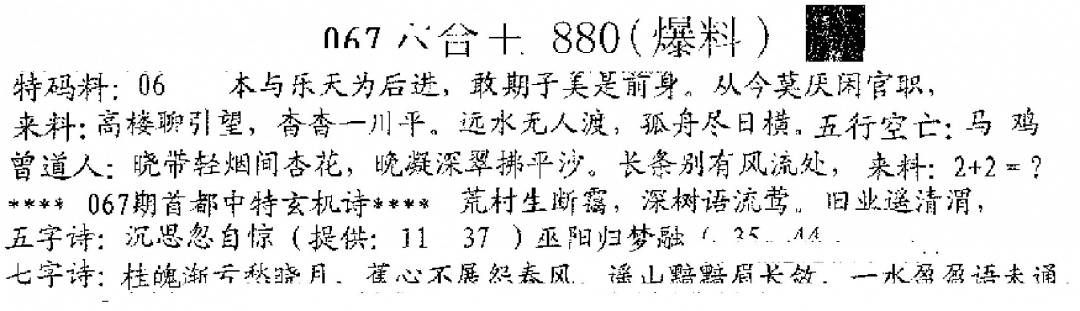 067 六合士 880(爆料)
特码料: 06 本与乐天为后进，敢期子美是前身。从今莫厌闲官职，
来料: 高楼聊引望，杳杳一川平。远水无人渡，孤舟尽日横。五行空亡: 马 鸡
曾道人: 晓带轻烟间杏花，晚凝深翠拂平沙。长条别有风流处，来料: 2+2 = ?
**** 067期首都中特玄机诗**** 荒村生断霭，深树语流莺。旧业遥清渭，
五字诗: 沉思忽自惊 (提供: 11 37 ) 巫阳归梦融 ( 35 44
七字诗: 桂魄渐亏愁晓月，蕉心不展怨春风。遥山黯黯眉长敛，一水盈盈语未通